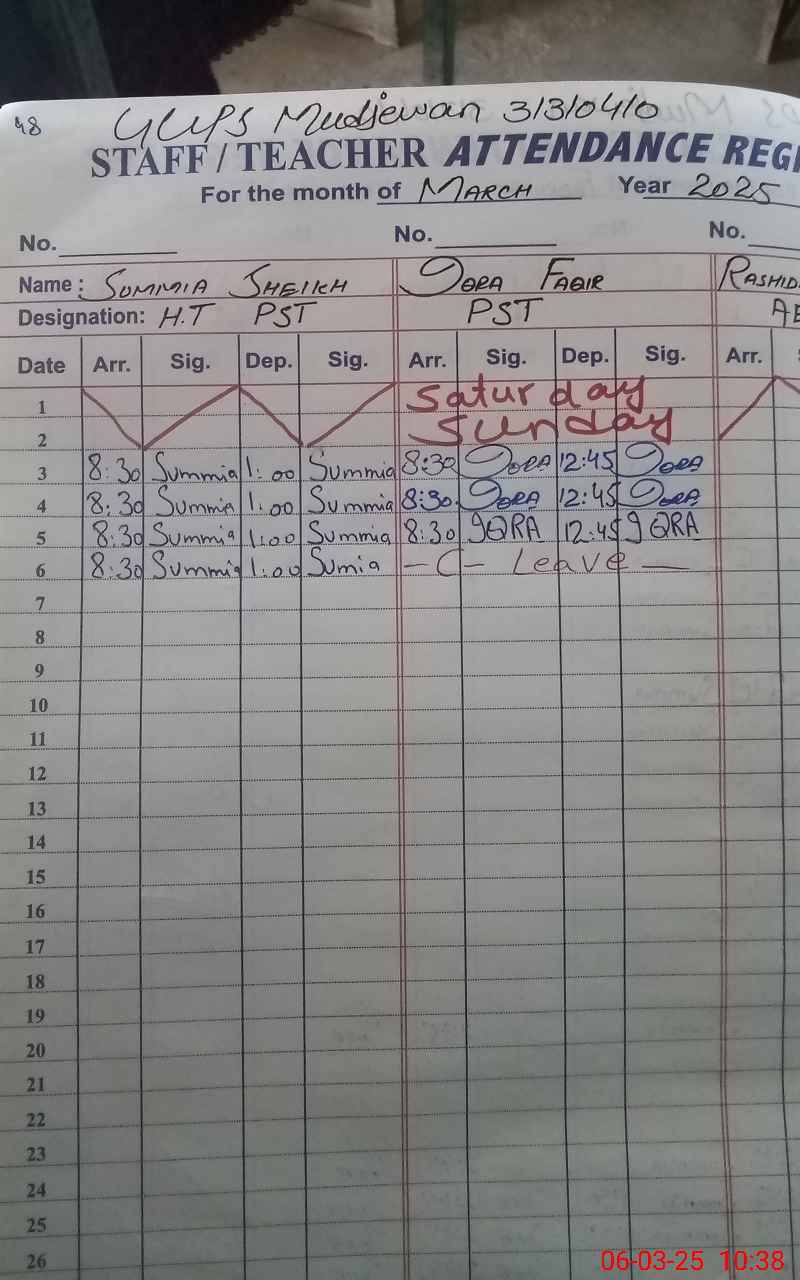 48
GGPS Mudjewan 313104010
STAFF / TEACHER ATTENDANCE REGI
For the month of MARCH Year 2025
No. No. No.
Name: SUMMIA SHEIKH IQRA FAQIR RASHID
Designation: H.T PST PST
Date Arr. Sig. Dep. Sig. Arr. Sig. Dep. Sig. Arr.
1 Saturday
2 Sunday
3 8:30 Summia 1:00 Summia 8:30 IQRA 12:45 IQRA
4 8:30 Summia 1:00 Summia 8:30 IQRA 12:45 IQRA
5 8:30 Summia 1:00 Summia 8:30 IQRA 12:45 IQRA
6 8:30 Summia 1:00 Sumia — C — Leave —
7
8
9
10
11
12
13
14
15
16
17
18
19
20
21
22
23
24
25
26
06-03-25 10:38